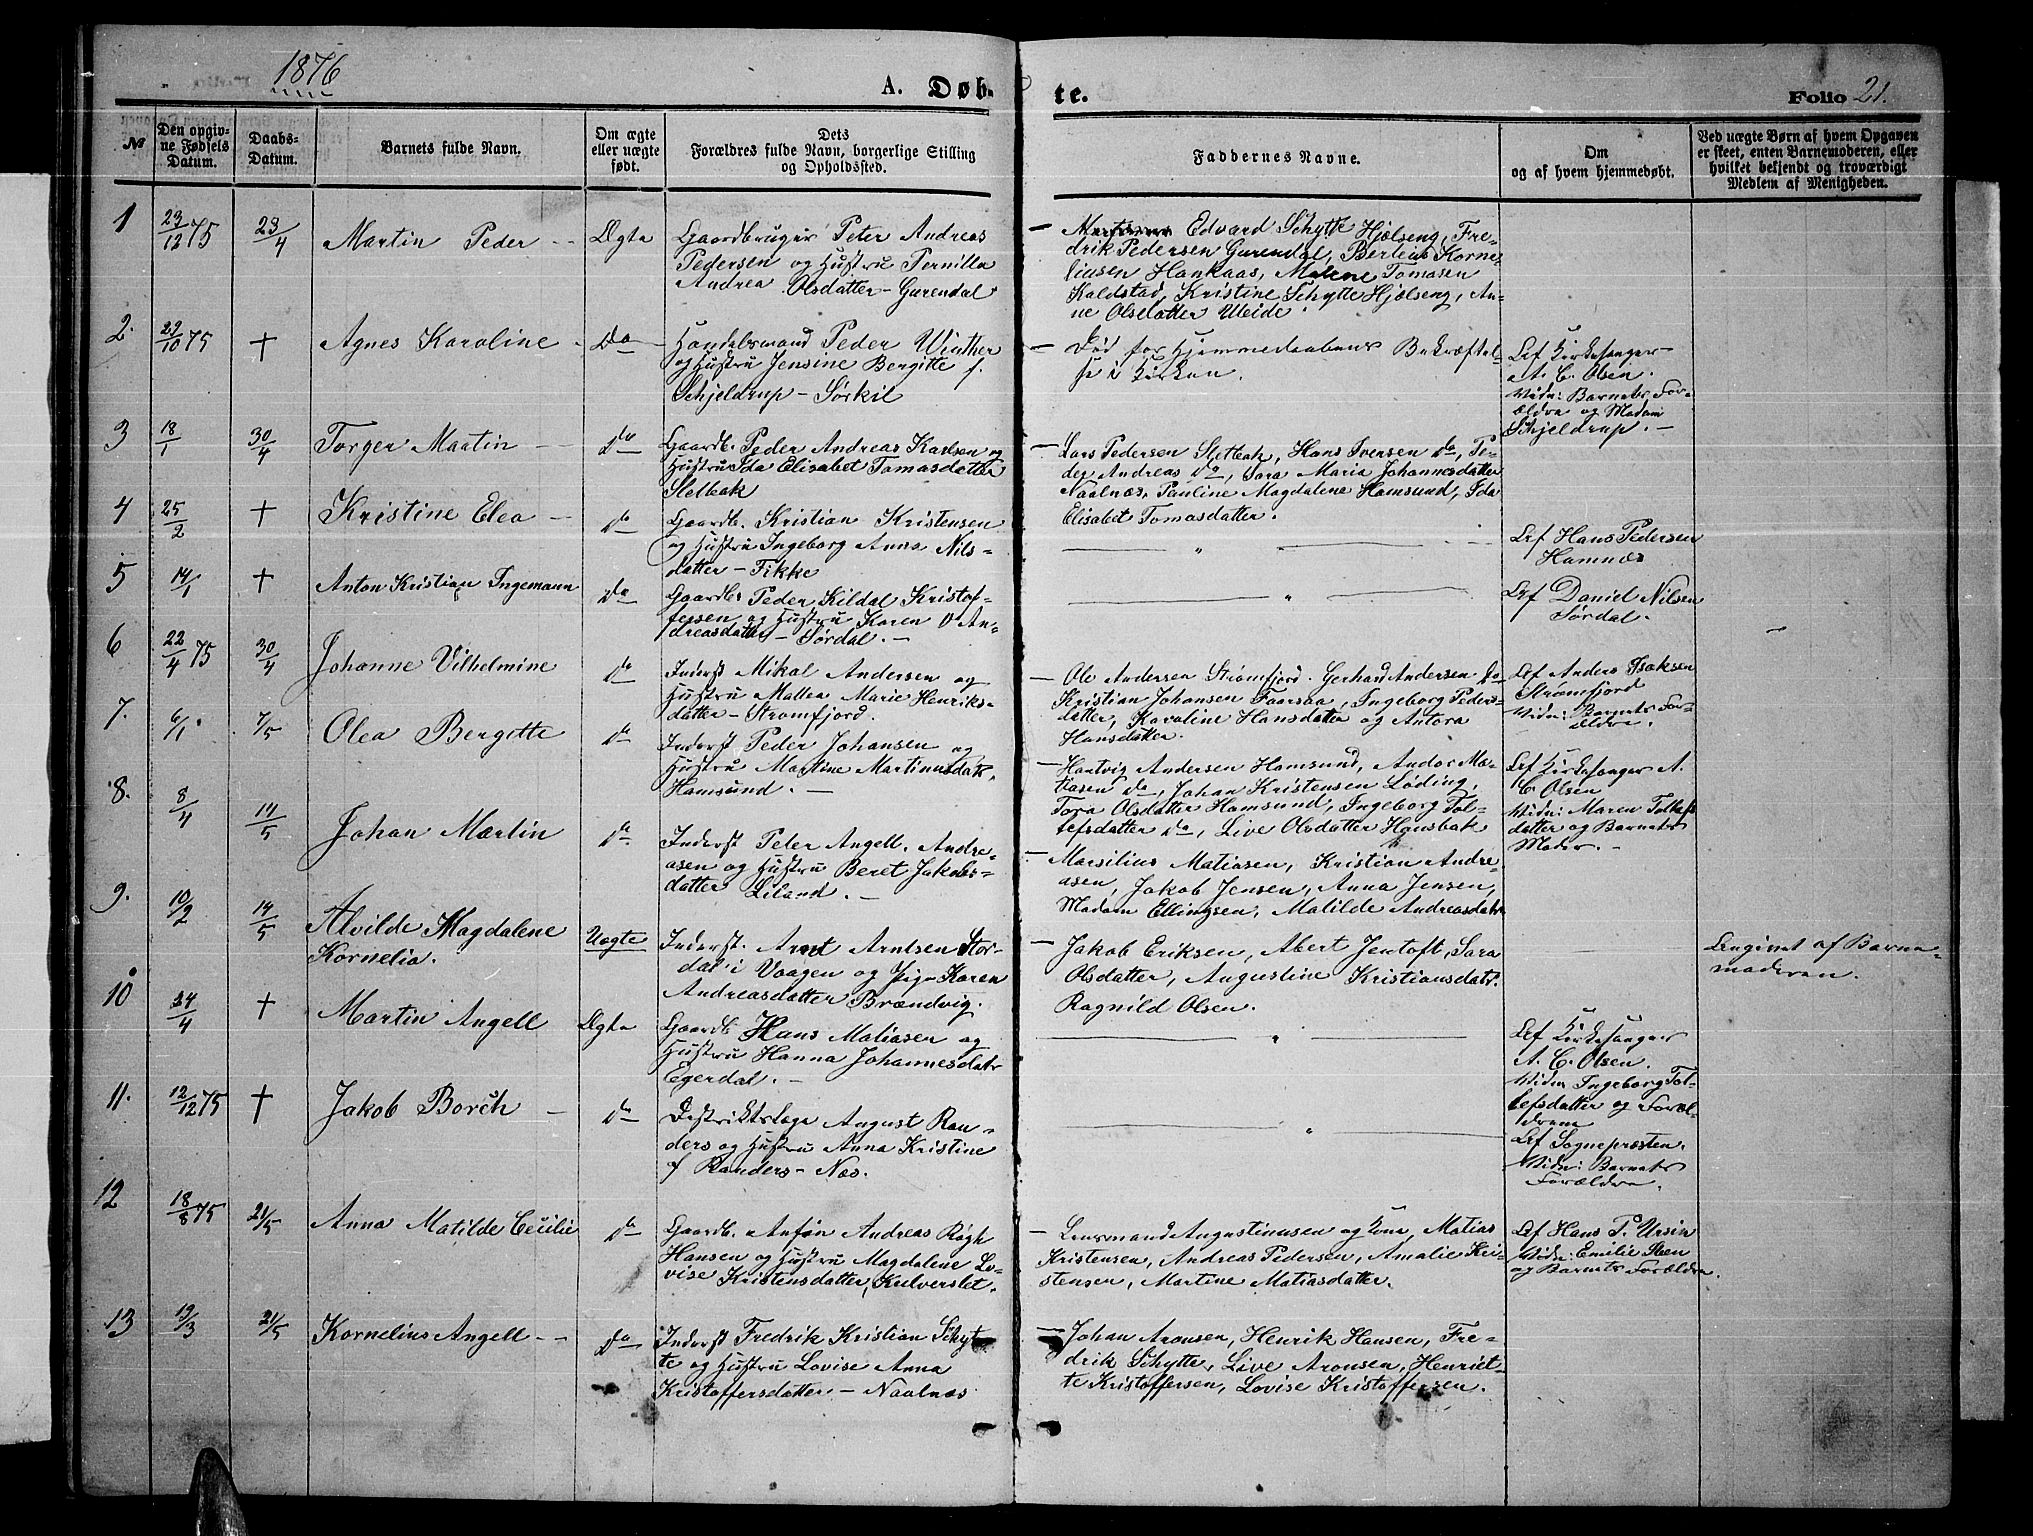 1876
A. Døb- te.
Folio 21.
№
Den opgiv-
ne Fødsels
Datum.
Daabs-
Datum.
Barnets fulde Navn.
Om ægte
eller uægte
født.
Dets
Forældres fulde Navn, borgerlige Stilling
og Opholdssted.
Faddernes Navne.
Om
og af hvem hjemmedøbt.
Ved uægte Børn af hvem Opgaven
er skeet, enten Barnemoderen, eller
hvilket bekjendt og troværdigt
Medlem af Menigheden.
1 23/12 75 23/4 Martin Peder - Ægte
Gaardbruger Peter Andreas
Pedersen og Hustru Pernille
Andrea Olsdatter - Gurendal
- Edvard Schytte Hjelseng, Fre-
drik Pedersen Gurendal, Berteus Korne-
liusen Hankaas, Malene Tomasen
Kaldstad, Kristine Schytte Hjelseng, An-
ne Olsdatter Uleide.
2. 29/10 75 + Agnes Karoline - Do
Handelsmand Peder Winther
og Hustru Jensine Bergitte f.
Schjeldrup - Sørkil
- Død før Hjemmedaabens Bekræftel-
se i Kirken.
Af Kirkesanger
A. C. Olsen.
Vidn: Barnets For-
ældre og Madam
Schjeldrup. -
3 18/1 30/4 Torger Martin - Do
Gaardb. Peder Andreas Karlsen og
Hustru Ida Elisabet Tomasdatter
Sletbak
- Lars Pedersen Sletbak, Hans Iversen do, Pe-
der Andreas do, Sara Maria Johannesdatter
Naalnæs, Pauline Magdalene Hamsund, Ida
Elisabet Tomasdatter.
4 25/2 + Kristine Elea - do
Gaardb. Kristian Kristensen
og Hustru Ingeborg Anna Nils-
datter - Fikke
— " —
Af Hans Pedersen
Hamnæs
5 14/1 + Anton Kristian Ingemann Do
Gaardb. Peder Kildal Kristof-
fersen og Hustru Karen O An-
dreasdatter - Sørdal. -
— " —
Af Daniel Nilsen
Sørdal.
6 22/4 75 30/4 Johanne Vilhelmine do
Inderst Mikal Andersen og
Hustru Maltea Marie Henriks-
datter - Strømfjord.
- Ole Andersen Strømfjord. Gerhard Andersen do
Kristian Johansen Faarsaa, Ingeborg Peders-
datter, Karoline Hansdatter og Antora
Hansdatter.
Af Anders Isaksen
Strømfjord
Vidn: Barnets For-
ældre.
7. 6/1. 7/5 Olea Bergitte do
Inderst Peder Johansen og
Hustru Martine Martinusdatr.
Hamsund. -
- Hartvig Andersen Hamsund, Andor Ma-
tiasen do, Johan Kristensen Løding,
Tora Olsdatter Hamsund, Ingeborg Tol-
lefsdatter do, Live Olsdatter Hansbak
Af Kirkesanger A.
C. Olsen
Vidn: Maren Tollefs
datter og Barnets
Moder. -
8. 8/4 14/5 Johan Martin do
Inderst Peter Angell. Andre-
asen og Hustru Beret Jakobs-
datter Liland. -
- Marsilius Matiasen, Kristian Andre-
asen, Jakob Jensen, Anna Jensen,
Madam Ellingsen, Matilde Andreasdatr
9. 10/2 14/5 Alvilde Magdalene
Kornelia.
Uægte
Inderst. Arnt Arntsen Stor-
dal i Vaagen og Pige Karen
Andreasdatter Brændvig.
- Jakob Eriksen, Abert Jentoft, Sara
Olsdatter, Augustine Kristiansdatr.
Ragnild Olsen.
Angivet af Barne-
moderen.
10 24/4 + Martin Angell Ægte
Gaardb Hans Matiasen og
Hustru Hanna Johannesdatr
Egerdal. -
— " —
Af Kirkesanger
A. C. Olsen.
Vidn Ingeborg Tol-
lefsdatter og Foræl-
drene
11. 12/12 75 + Jakob Borch - do
Distriktslæge August Ran-
ders og Hustru Anna Kristine
f Randers - Næs.
— " —
Af Sognepræsten.
Vidn: Barnets
Forældre.
12 18/8 75 21/5 Anna Matilde Cecilie do
Gaardb. Anfin Andreas Røgh
Hansen og Hustru Magdalene Lo-
vise Kristensdatter, Kulverslet.
- Lensmand Augustinusen og Kone, Matias
Kristensen, Andreas Pedersen, Amalie Kri-
stensen, Martine Matiasdatter.
Af Hans P. Ursin
Vidn: Emilie Steen
og Barnets Forældre.
13 19/3 21/5 Kornelius Angell - - Do
Inderst Fredrik Kristian Schyt-
te og Hustru Lovise Anna
Kristoffersdatter - Naalnæs
- Johan Aronsen, Henrik Hansen, Fre-
drik Schytte, Live Aronsen, Henriet-
te Kristoffersen, Lovise Kristoffersen.